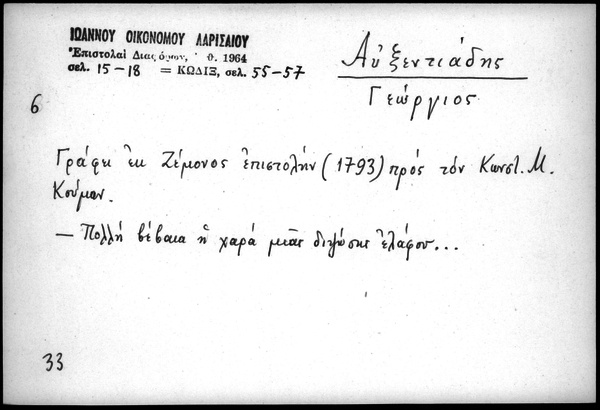 ΙΩΑΝΝΟΥ ΟΙΚΟΝΟΜΟΥ ΛΑΡΙΣΑΙΟΥ
Ἐπιστολαὶ 1964
σελ. 15-18 = ΚΩΔΙΞ, σελ. 55-57
Αὐξεντιάδης
Γεώργιος
6
Γράφει ἐκ Ζέμονος ἐπιστολήν (1793) πρός τόν Κωνστ. Μ.
Κούμαν.
— Πολλή βέβαια ἡ χαρά μιᾶς διψώσης ἐλάφου...
33